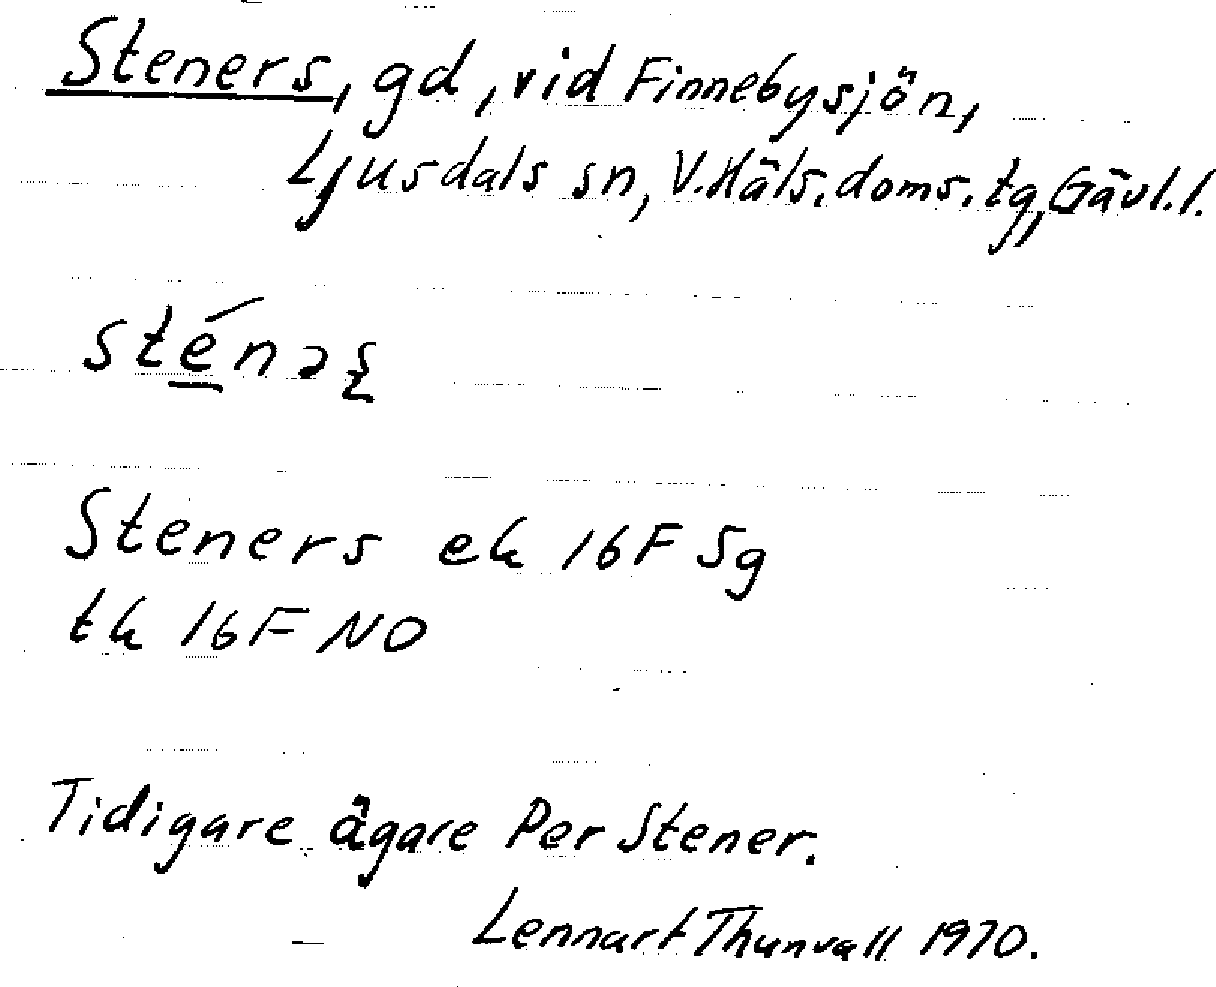 Steners, gd, vid Finnebysjön,
Ljusdals sn, V.Häls.doms.tg, Gävl.l.
sté̲nəʂ
Steners ek 16F 5g
tk 16F NO
Tidigare ägare Per Stener.
Lennart Thunvall 1970.